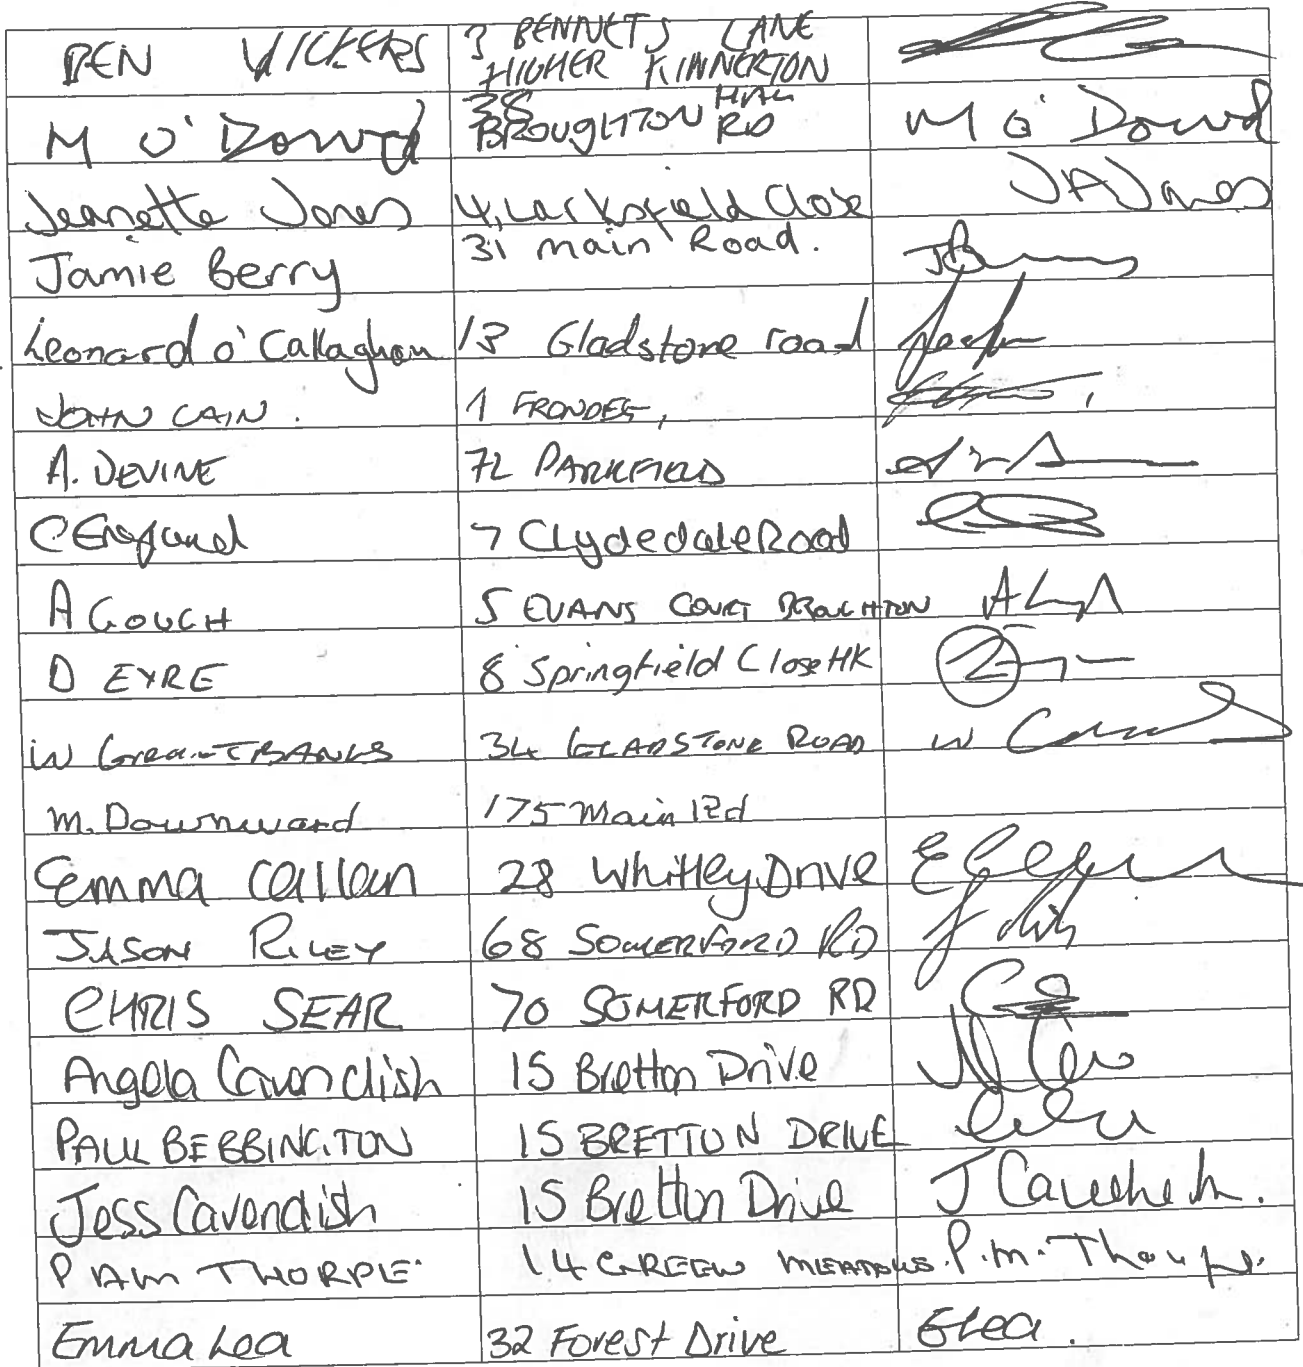 BEN VICKERS 3 BENNETS LANE
HIGHER KINNERTON
M O'Dowd 38 BROUGHTON HALL RD M O' Dowd
Jeanette Jones 4, Larksfield Close JAJones
Jamie Berry 31 main Road.
Leonard o' Callaghan 13 Gladstone road
JOHN CAIN. 1 FRONDEG,
A. DEVINE 72 PARKFIELD
C England 7 Clydedale Road
A GOUCH 5 EVANS COURT BROUGHTON
D EYRE 8 Springfield Close HK
W 34 GLADSTONE ROAD W
M. Downward 175 Main Rd
Emma Callan 28 Whitley Drive
JASON RILEY 68 SOMERFORD RD
CHRIS SEAR 70 SOMERFORD RD
Angela Cavendish 15 Bretton Drive
PAUL BEBBINGTON 15 BRETTON DRIVE
Jess Cavendish 15 Bretton Drive J
PAM THORPE 14 GREEN MEADOWS. P.M. Thorpe.
Emma Lea 32 Forest Drive ELea.